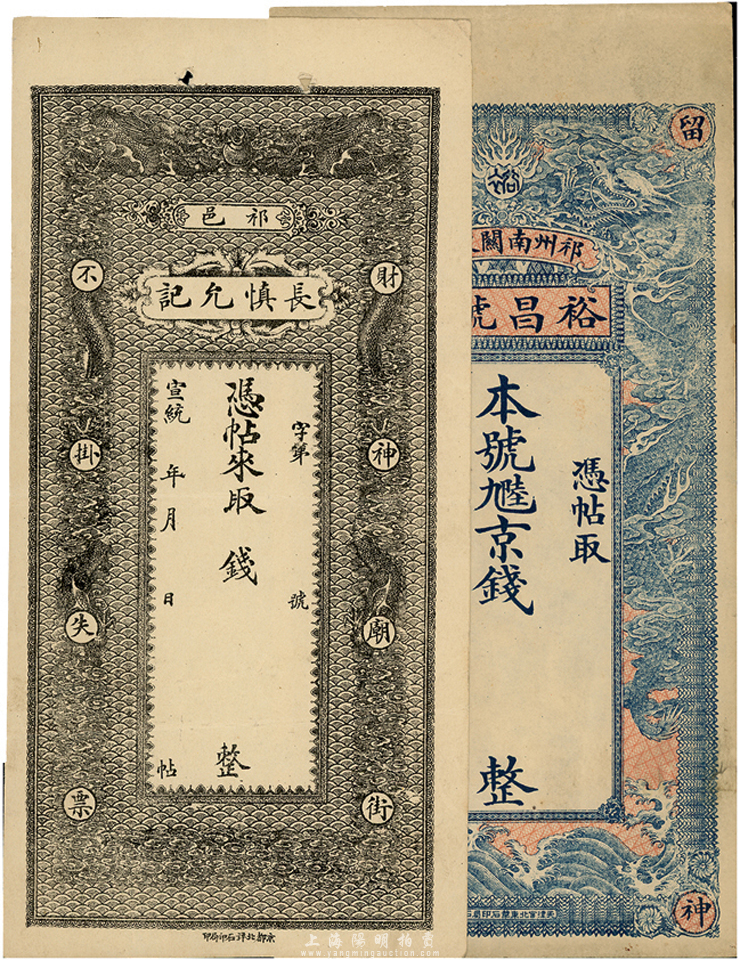 祁邑
長慎允記
財神廟街
不掛失票
字第 號
憑帖來取 錢 整
宣統 年 月 日 帖
京都北洋石印局印
留
神
裕
祁州南關
裕昌號
憑帖取
本號 京錢 整
上海陽明拍賣
www.yangmingauction.com